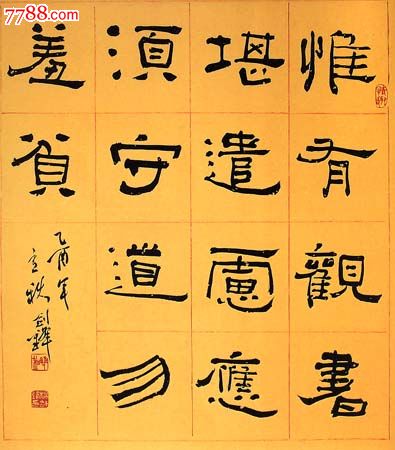 7788.com
惟有觀書
堪遣慮應
須守道勿
羞貧
乙酉年
立秋